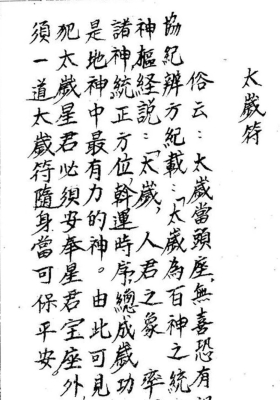 太歲符
俗云：太歲當頭座，無喜恐有
協紀辨方紀載：「太歲為百神之統
神樞経説：「太歲，人君之象，率
諸神統正方位，斡運時序，總成歲功
是地神中最有力的神。由此可見
犯太歲星君必須安奉星君宝座外
須一道太歲符隨身當可保平安